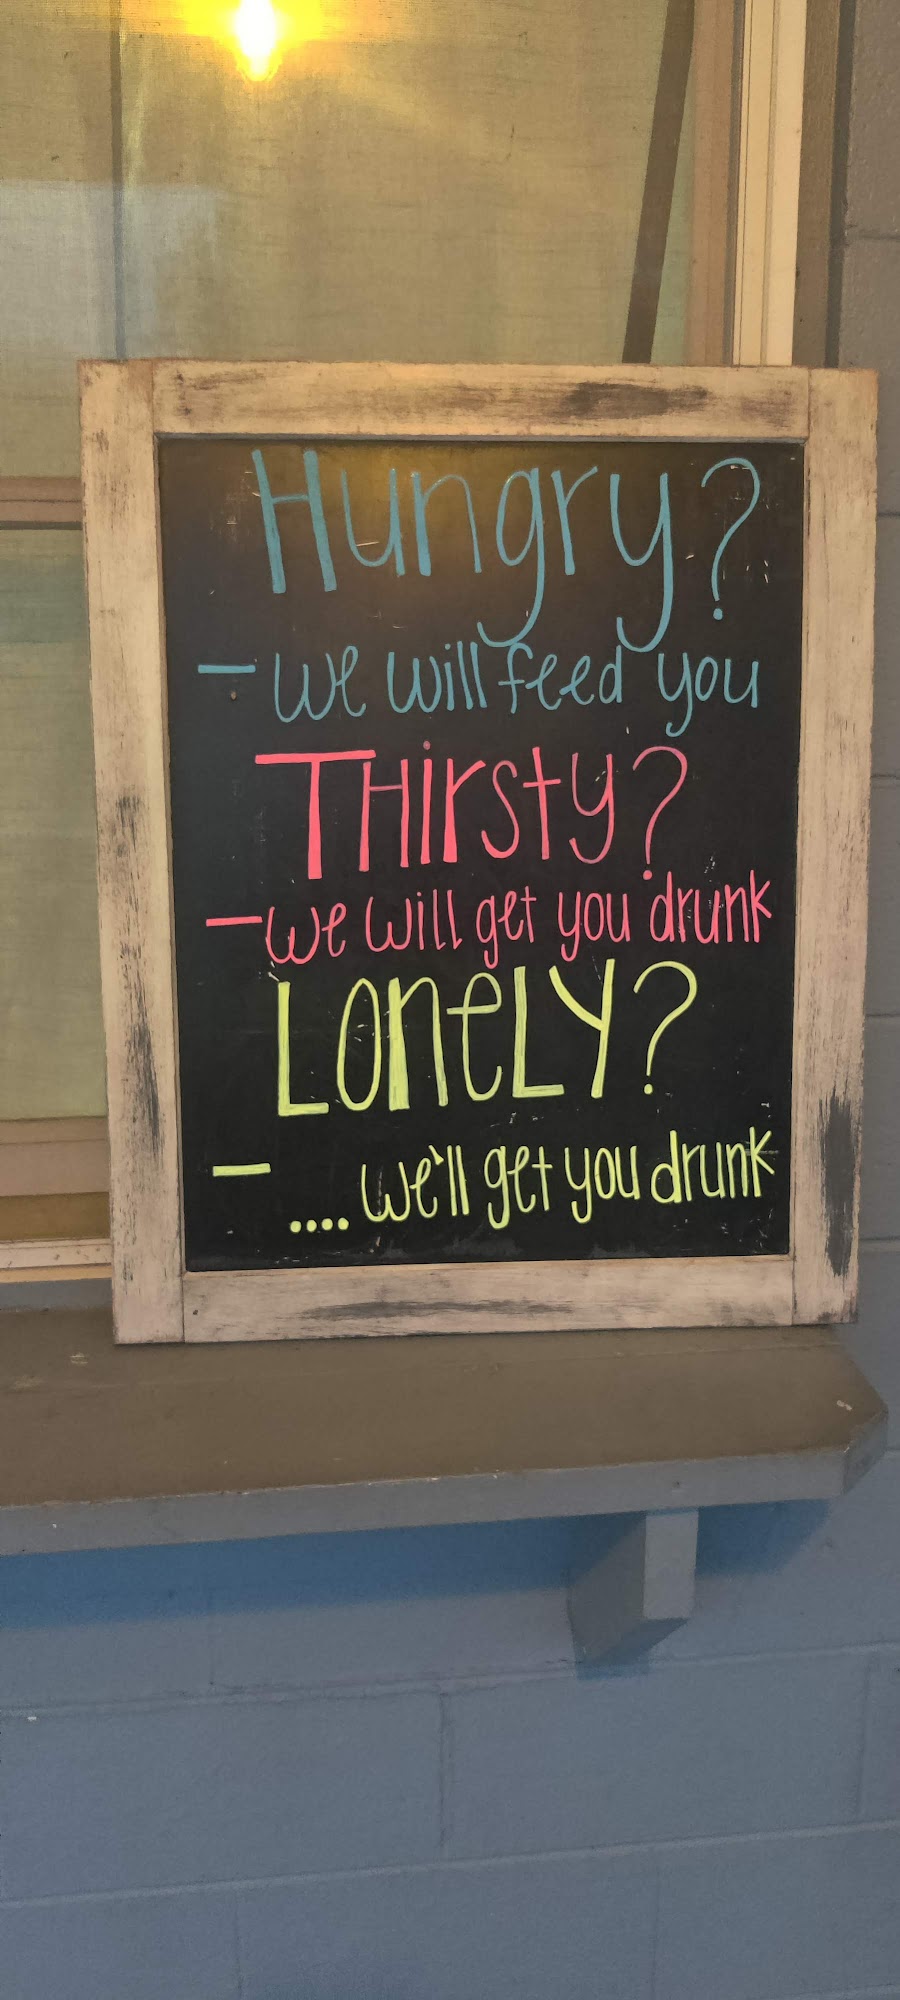 Hungry?
- we will feed you
THirsty?
- we will get you drunk
LoneLY?
- .... we'll get you drunk